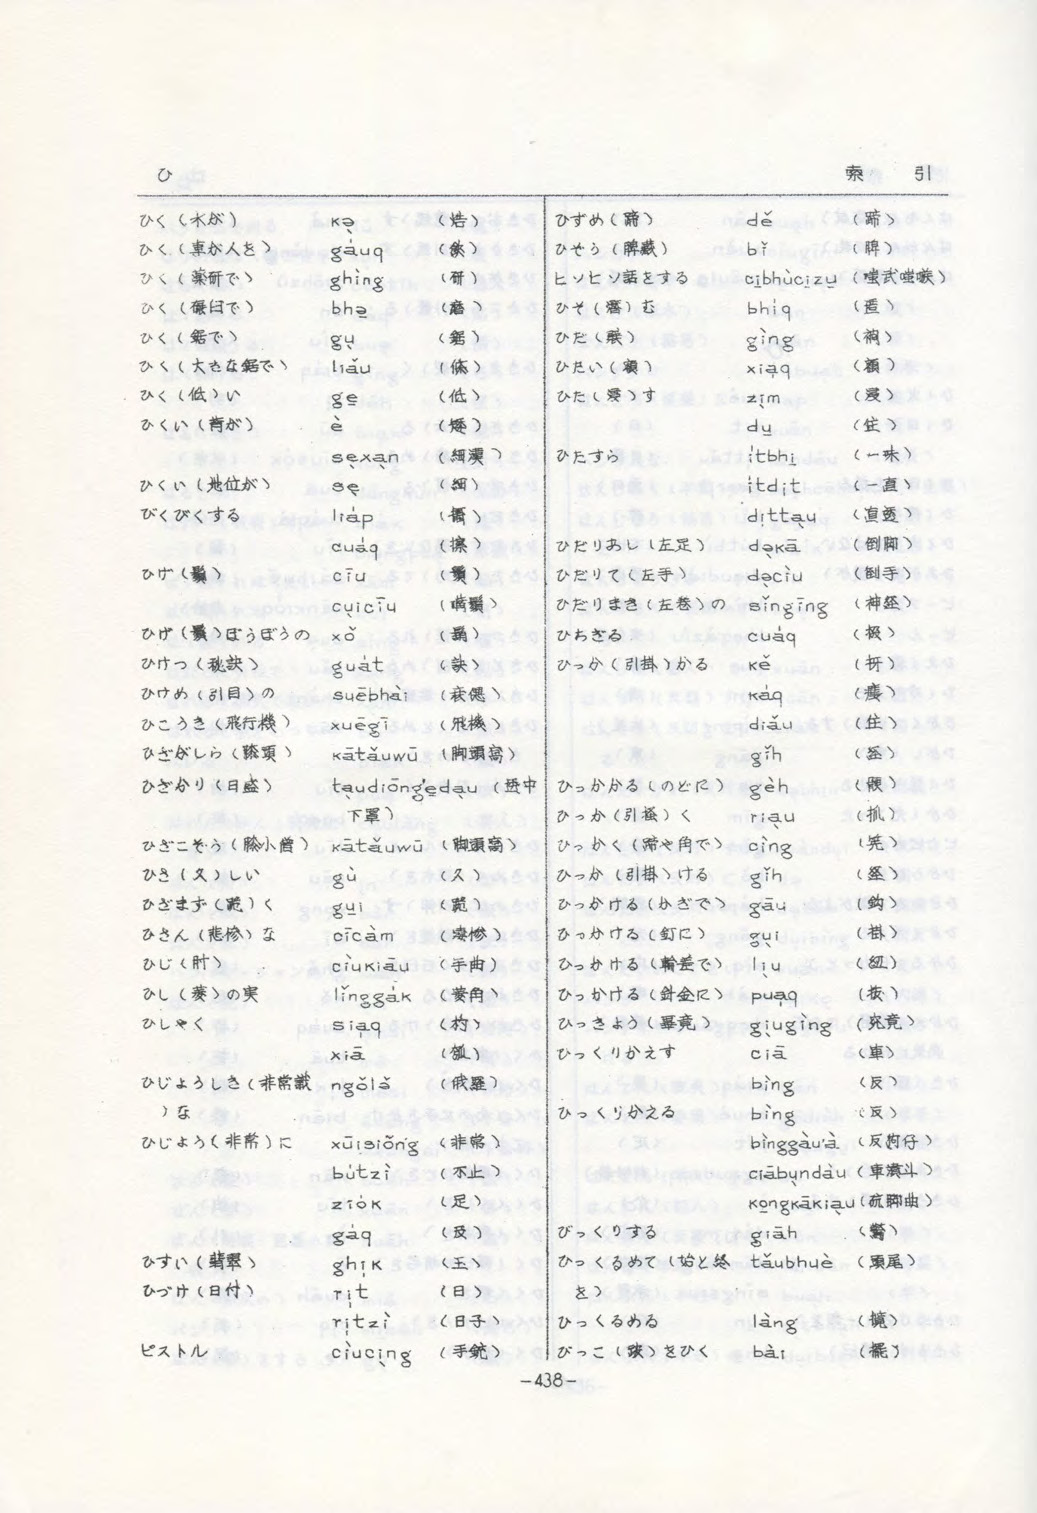 ひ 索 引
ひく(水が) kə̣ (焅)
ひく(車が人を) gáuq
ひく(薬研で) ghìng (研)
ひく(碾臼で) bhə̱ (磨)
ひく(鋸で) gụ̀ (鋸)
ひく(大きな鋸で) liǎu
ひく(低)い ge̱ (低)
ひくい(背が) è (矮)
sẹxạn
ひくい(地位が) sẹ (細)
びくびくする liáp
cuáq
ひげ(鬚) cīu (鬚)
cụicīu (嘴鬚)
ひげ(鬚)ぼうぼうの xǒ
ひけつ(秘訣) guát (訣)
ひけめ(引目)の suēbhài (衰偲)
ひこうき(飛行機) xuēgī (飛機)
ひざがしら(膝頭) kātǎuwū (脚頭窩)
ひざかり(日盛) tạudiōnge̱dạu
下罩)
ひざこぞう(膝小僧) kātǎuwū (脚頭窩)
ひさ(久)しい gù (久)
ひざまず(跪)く gụi (跪)
ひさん(悲惨)な cīcàm (凄惨)
ひじ(肘) cìukiāu (手曲)
ひし(菱)の実 lǐnggák (菱角)
ひしゃく siạq (杓)
xiā
ひじょうしき(非常識 ngǒlǎ (俄羅)
)な
ひじょう(非常)に xūisiǒng (非常)
bútzì (不止)
ziók (足)
gáq (及)
ひすい(翡翠) ghịk (玉)
ひづけ(日付) rịt (日)
rịtzì (日子)
ピストル cìucịng (手銃)
ひずめ(蹄) dě (蹄)
ひぞう(脾臓) bǐ (脾)
ヒソヒソ話をする cībhùcīzụ
ひそ(潜)む bhiq
ひだ(襞) gìng
ひたい(額) xiạq (額)
ひた(浸)す zịm (浸)
dụ
ひたすら ítbhị (一味)
ítdịt (一直)
dịttạu (直透)
ひだりあし(左足) dəkā (倒脚)
ひだりて(左手) dəcìu (倒手)
ひだりまき(左巻)の sǐngīng (神経)
ひちぎる cuáq
ひっか(引掛)かる kě
káq
diǎu (住)
gǐh
ひっかかる(のどに) gèh
ひっか(引掻)く riạu (抓)
ひっかく(蹄や角で) cìng
ひっか(引掛)ける gǐh
ひっかける(かぎで) gāu (鈎)
ひっかける(釘に) gụi (掛)
ひっかける(輪差で) lịu (紐)
ひっかける(針金に) puạq
ひっきょう(畢竟) gịugìng (究竟)
ひっくりかえす ciā (車)
bìng (反)
ひっくりかえる bìng (反)
bìnggàu'à (反狗仔)
ciābụndàu (車畚斗)
kọngkākiạu
びっくりする giāh (驚)
ひっくるめて(始と終 tǎubhuè (頭尾)
を)
ひっくるめる làng
びっこ(跛)をひく bài (擺)
-438-